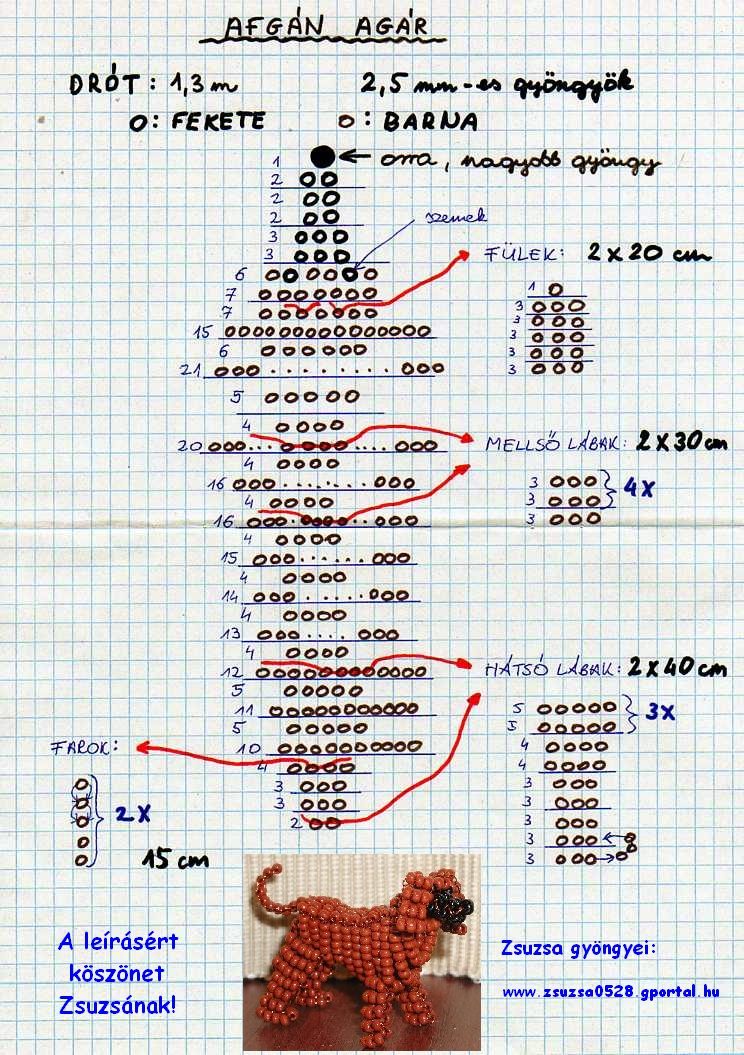 AFGÁN AGÁR
DRÓT: 1,3 m 2,5 mm-es gyöngyök
O: FEKETE O: BARNA
1 ← orra, nagyobb gyöngy
2
2
2
szemek
3
3
FÜLEK: 2 x 20 cm
6
7
7
15
6
21
5
1
3
3
3
3
3
4
20
4
16
4
16
4
15
4
14
4
13
4
12
5
11
5
10
4
3
3
2
MELLSŐ LÁBAK: 2 x 30 cm
3
3
4X
3
HÁTSÓ LÁBAK: 2 x 40 cm
5
5
3X
4
4
3
3
3
3
3
FAROK:
2X
15 cm
A leírásért
köszönet
Zsuzsának!
Zsuzsa gyöngyei:
www.zsuzsa0528.gportal.hu